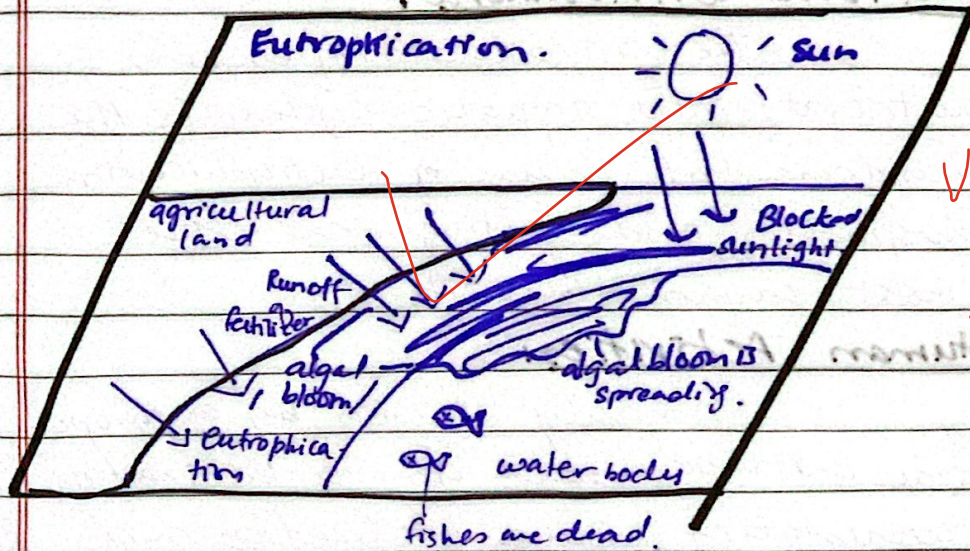 Eutrophication.
Sun
agricultural
land
Blocked
sunlight
Runoff
of
fertilizer
algal
bloom
algal bloom is
spreading.
eutrophica-
tion
water bodies
fishes are dead.